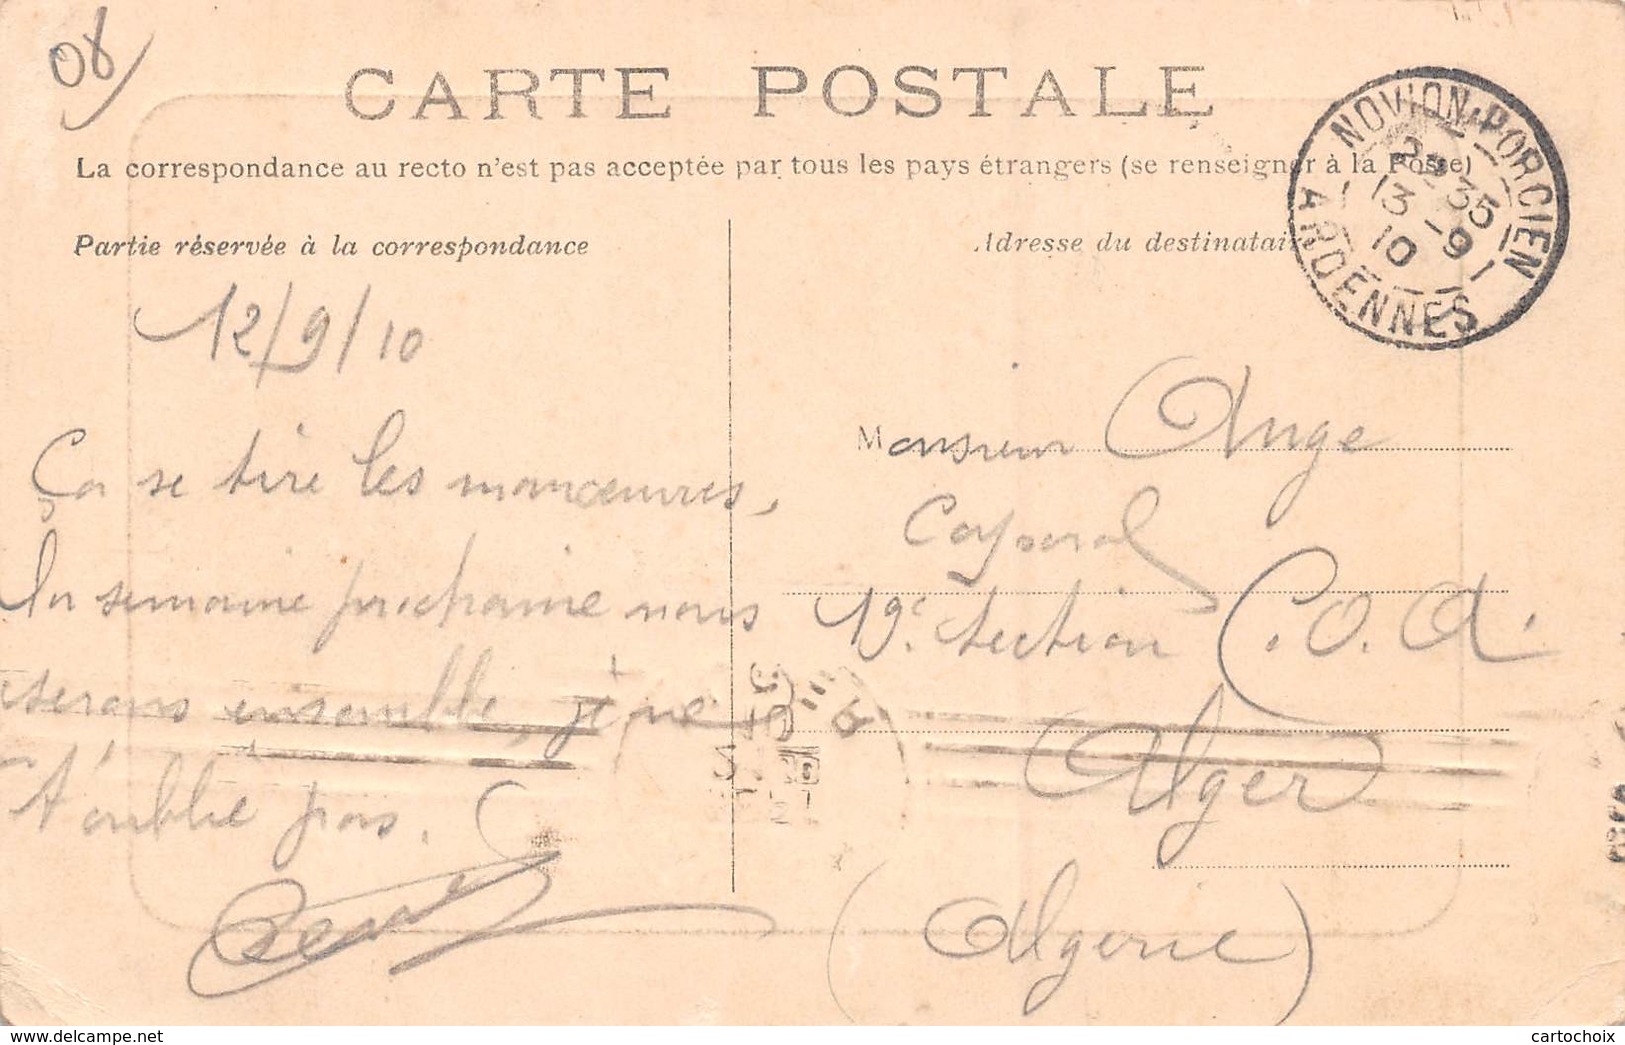 08
CARTE POSTALE
La correspondance au recto n'est pas acceptée par tous les pays étrangers (se renseigner à la Poste)
Partie réservée à la correspondance
Adresse du destinataire
NOVION-PORCIEN
2E 35
13-9
10
ARDENNES
12/9/10
Ça se tire les manœuvres,
la semaine prochaine nous
serons ensemble, je ne
t'oublie pas.
Monsieur Ange
Caporal
19e section C.O.A.
Alger
(Algérie)
www.delcampe.net
cartochoix